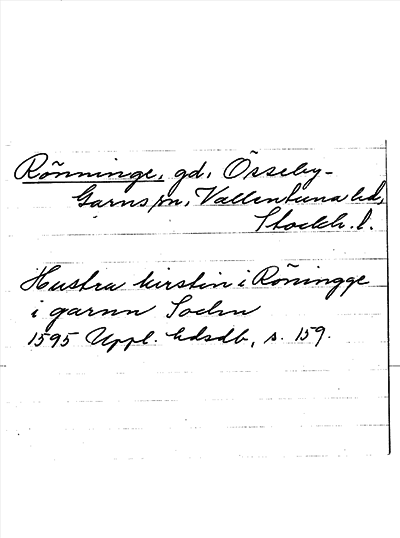 Rönninge, gd, Össeby-
Garns sn, Vallentuna hd,
Stockh. l.
Hustra kirstin i Röningge
i garnn Sochn
1595 Uppl. hdsdb, s. 159.